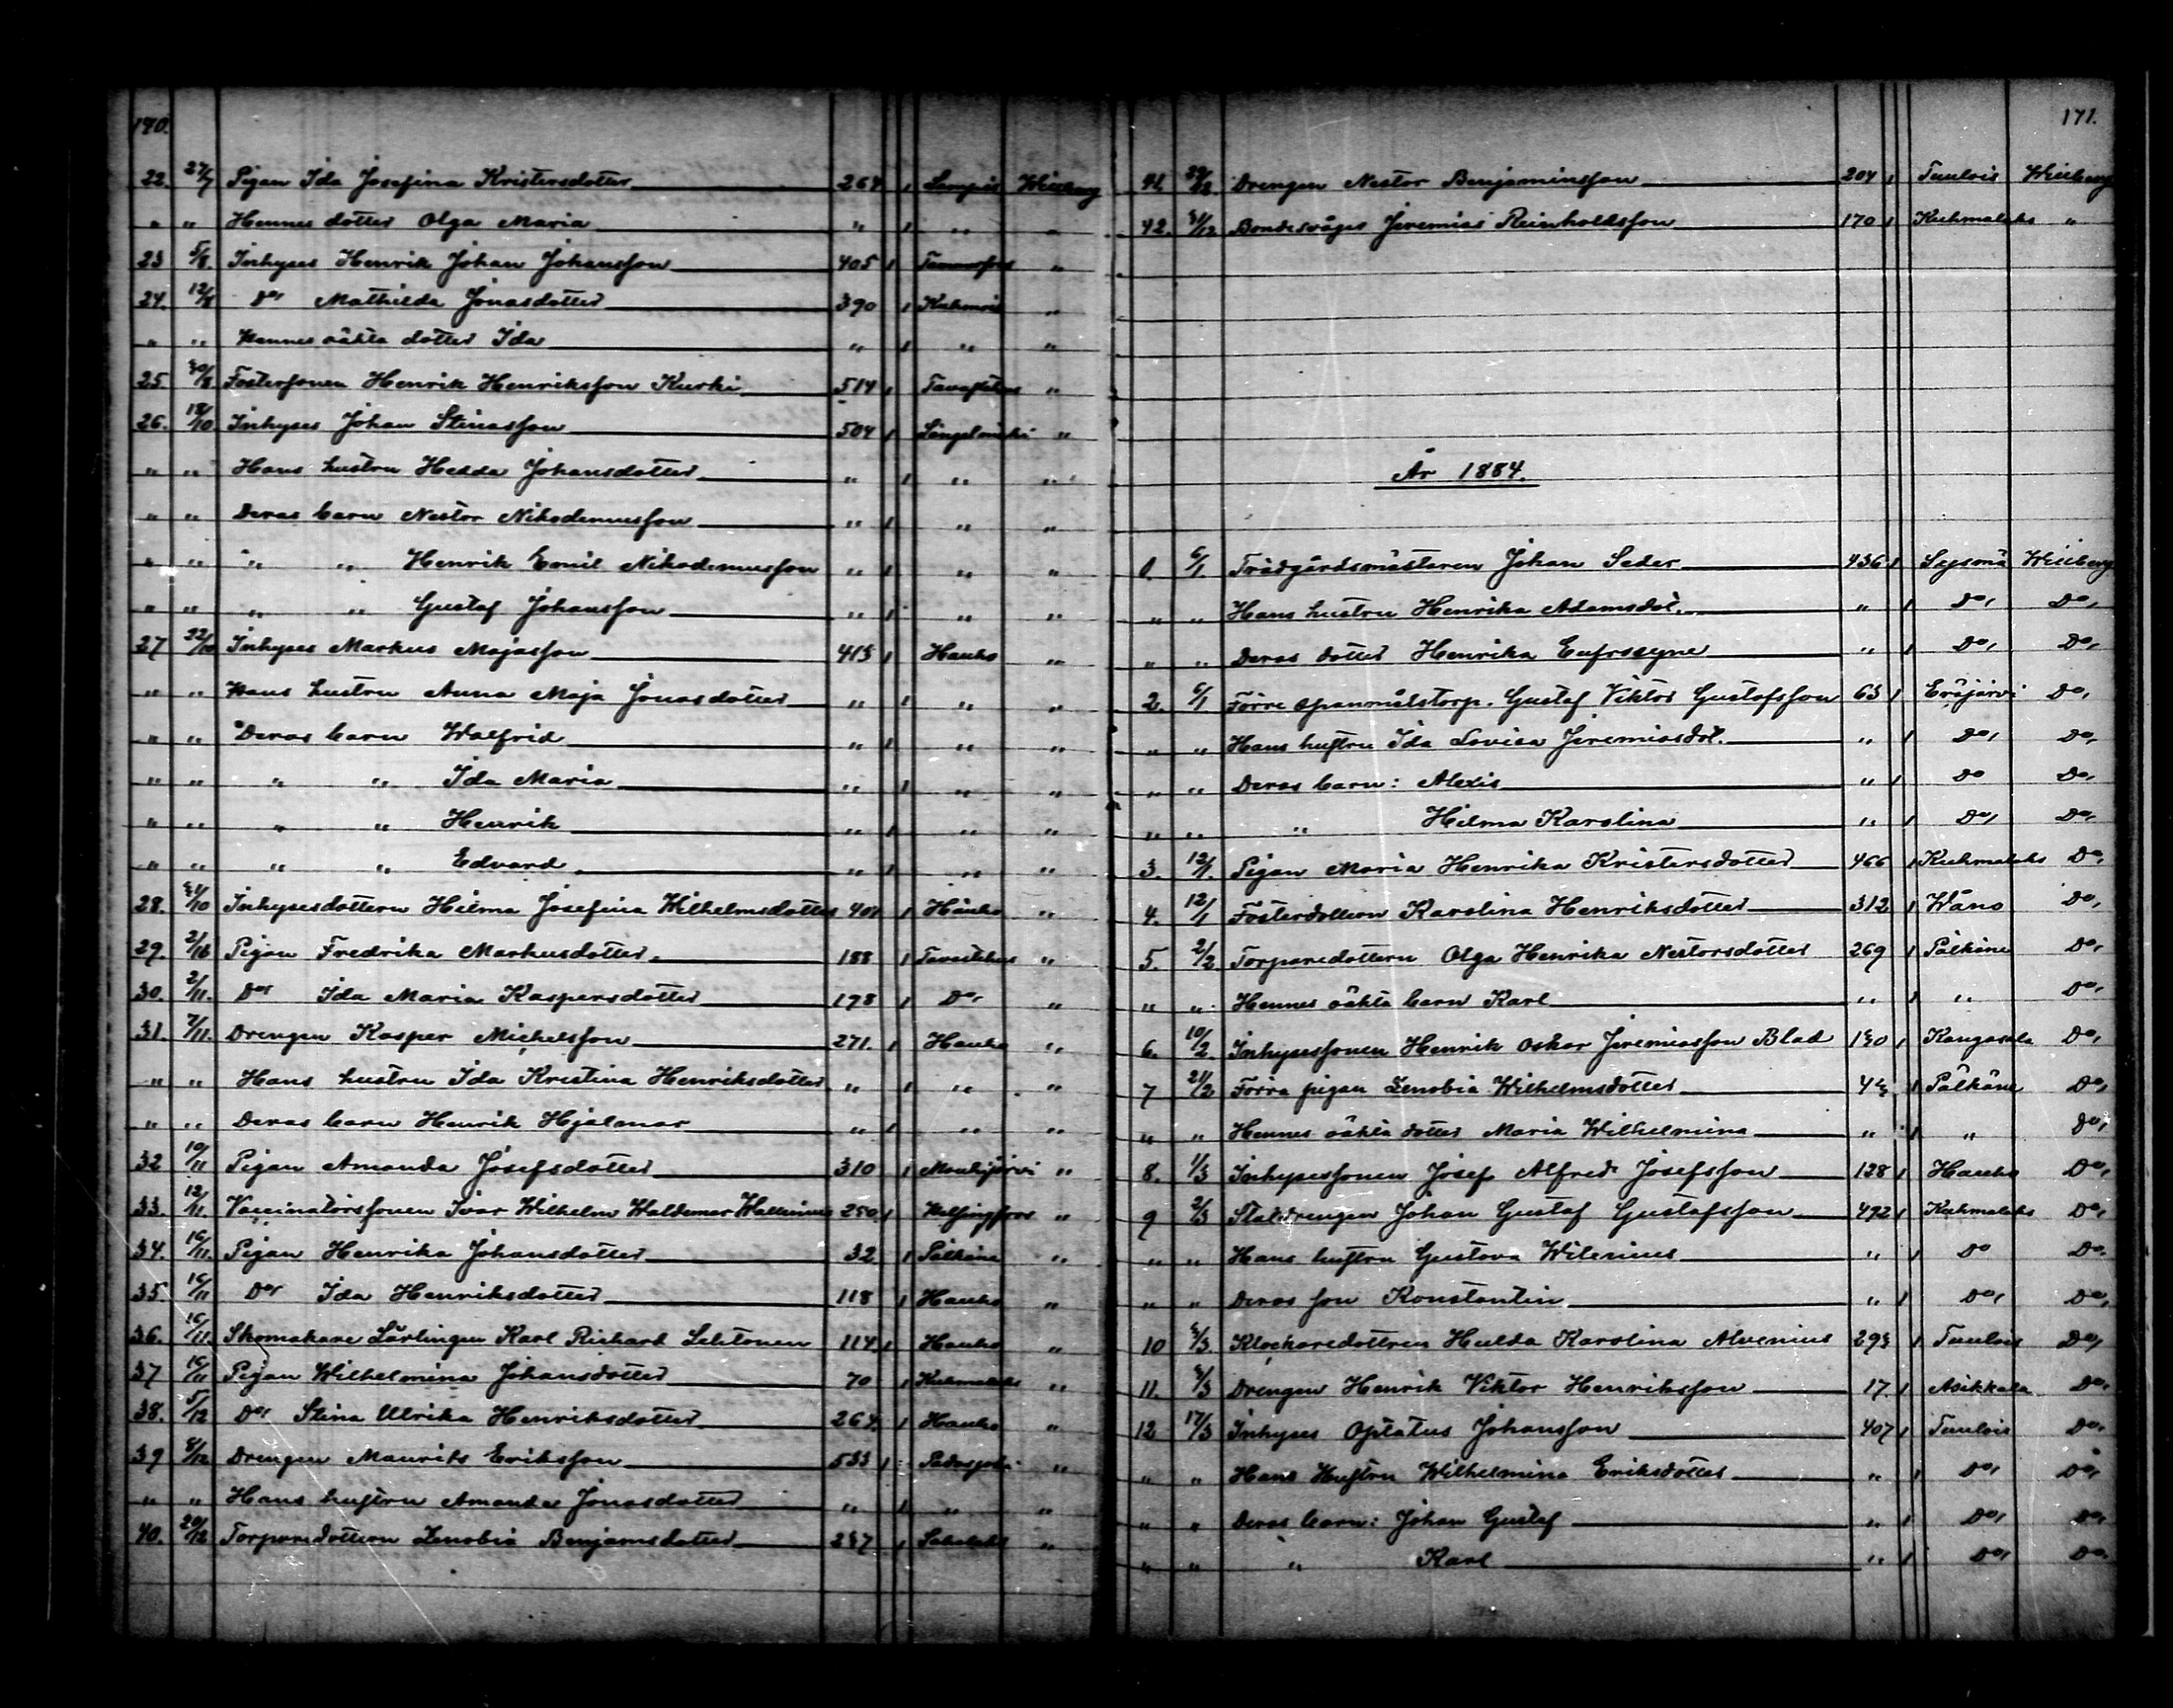 170.
22. 27/7 Pigan Ida Josefina Kristersdotter 264 1 Lampis Weisberg
" " Hennes dotter Olga Maria " 1 " "
23 5/8 Inhyses Henrik Johan Johansson 405 1 Tammerfors "
24. 12/8 Do, Mathilda Jonasdotter 390 1 "
" " Hennes oäkta dotter Ida " 1 " "
25 30/8 Fostersonen Henrik Henriksson Kurki 514 1 Tavastehus "
26. 18/10 Inhyses Johan Stinasson 504 1 Längelmäki "
" " Hans hustru Hedda Johansdotter " 1 " "
" " Deras barn Nestor Nikodemusson " 1 " "
" " " " Henrik Emil Nikodemusson " 1 " "
" " " " Gustaf Johansson " 1 " "
27 22/10 Inhyses Markus Majasson 415 1 Hauho "
" " Hans hustru Anna Maja Jonasdotter " 1 " "
" " Deras barn Walfrid " 1 " "
" " " " Ida Maria " 1 " "
" " " " Henrik " 1 " "
" " " " Edvard " 1 " "
28. 31/10 Inhysesdottern Hilma Josefina Wilhelmsdotter 401 1 Hauho "
29. Pigan Fredrika Markusdotter 188 1 Tavastehus "
30. 2/11. Do, Ida Maria Kaspersdotter 178 1 Do, "
31. 7/11. Drengen Kasper Michelsson 271. 1 Hauho "
" " Hans hustru Ida Kristina Henriksdotter " 1 " "
" " Deras barn Henrik Hjalmar " 1 " "
32 10/11 Pigan Amanda Josefsdotter 310 1 Mouhijärvi "
33. 12/11. Vaccinatorssonen Ivar Wilhelm Waldemar Wallenius 250 1 Helsingfors "
34. 16/11. Pigan Henrika Johansdotter 32 1 Pälkäne "
35. 16/11 Do, Ida Henriksdotter 118 1 Hauho "
36. 16/11. Skomakare Lärlingen Karl Richard Lehtonen 114 1 Hauho "
37 16/11 Pigan Wilhelmina Johansdotter 70 1 Kuhmalaks "
38. 5/12 Do, Stina Ulrika Henriksdotter 264. 1 Hauho "
39 8/12 Drengen Maurits Eriksson 533 1 Padasjoki "
" " Hans hustru Amanda Jonasdotter " 1 " "
40. 20/12 Torparedottern Zenobia Benjamsdotter 247 1 Sahalaks "
171.
41. 29/12 Drengen Nestor Benjaminsson 204 1 Tuulois Weisberg
42. 31/12 Bondesvåger Jeremias Reinholdsson 170 1 Kuhmalaks "
År 1884.
1. 6/1. Trädgårdsmästaren Johan Seder 436 1 Sysmä Weisberg
" " Hans hustru Henrika Adamsdot. " 1 Do, Do,
" " Deras dotter Henrika Eufrosyne " 1 Do, Do,
2. 6/1 Förre spanmålstorp. Gustaf Viktor Gustafsson 63 1 Eräjärvi Do,
" " Hans hustru Ida Lovisa Jeremiasdot. " 1 Do, Do,
" " Deras barn: Alexis " 1 Do Do,
" " " Hilma Karolina " 1 Do, Do,
3. 12/1. Pigan Maria Henrika Kristersdotter 466 1 Kuhmalaks Do,
4. 12/1 Fosterdottern Karolina Henriksdotter 312 1 Wånå Do,
5. 2/2 Torparedottern Olga Henrika Nestorsdotter 269 1 Pälkäne Do,
" " Hennes oäkta barn Karl " 1 " Do,
6. 10/2. Inhysessonen Henrik Oskar Jeremiasson Blad 130 1 Kangasala Do,
7 21/2 Förra pigan Zenobia Wilhelmsdotter 1 Pälkäne Do,
" " Hennes oäkta dotter Maria Wilhelmina " 1 " Do,
8. 1/3 Inhysessonen Josef Alfred Josefsson 128 1 Hauho Do,
9 2/3 Staldrengen Johan Gustaf Gustafsson 492 1 Kuhmalaks Do,
" " Hans hustru Gustava Wilenius " 1 Do Do.
" " Deras son Konstantin " 1 Do, Do,
10 3/3. Klockaredottren Hulda Karolina Alvenius 293 1 Tuulois Do,
11. 3/3 Drengen Henrik Viktor Henriksson 17. 1 Asikkala Do,
12 17/3 Inhyses Optatus Johansson 407 1 Tuulois Do.
" " Hans Hustru Wilhelmina Eriksdotter " 1 Do, Do,
" " Deras barn: Johan Gustaf " 1 Do, Do,
" " " Karl " 1 Do, Do.